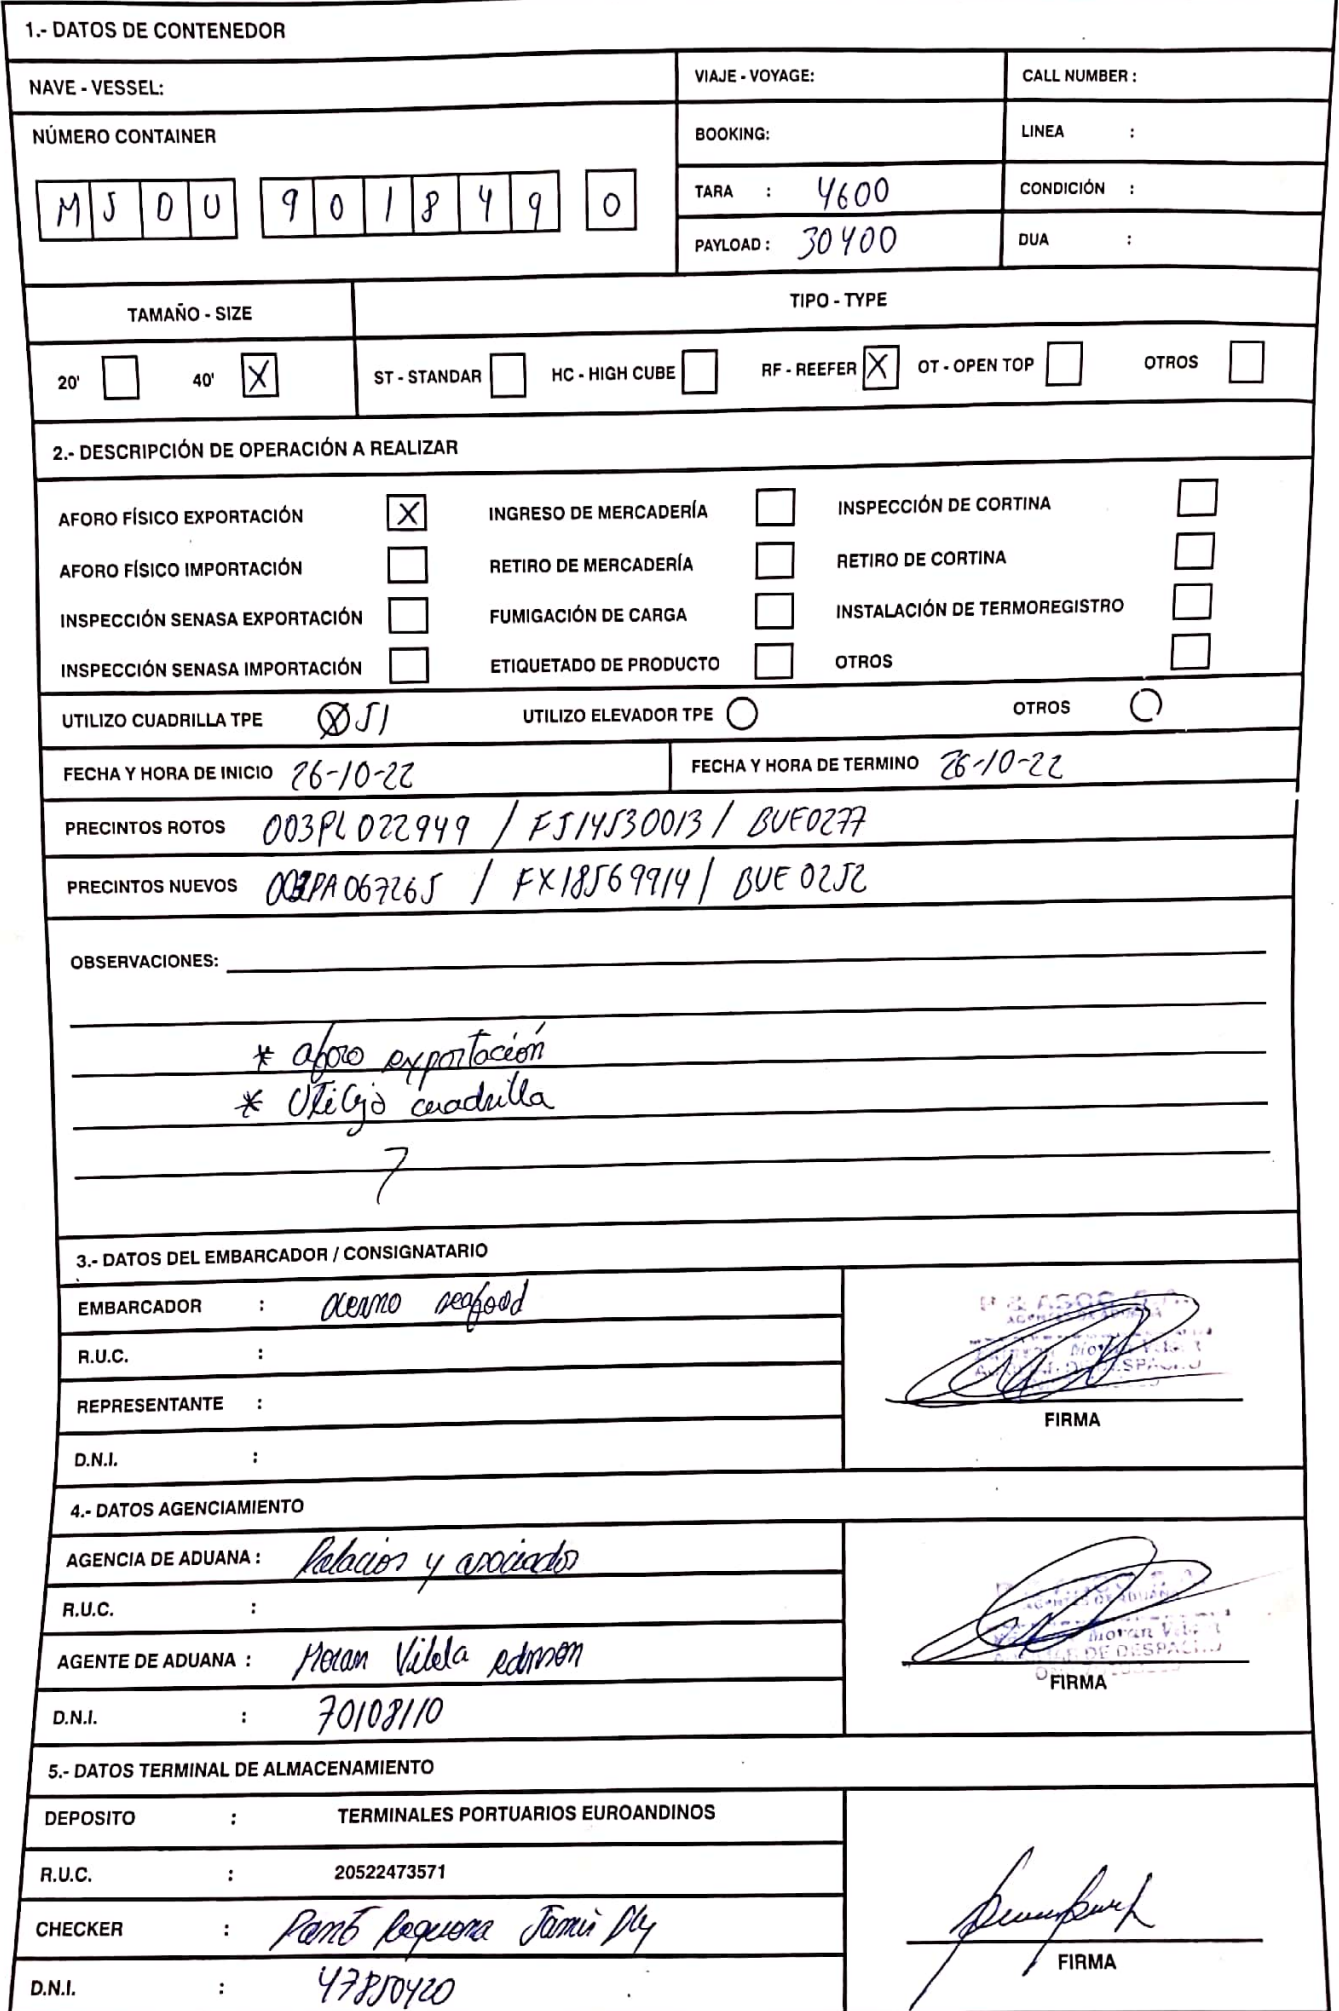 1.- DATOS DE CONTENEDOR
NAVE - VESSEL:
VIAJE - VOYAGE:
CALL NUMBER :
NÚMERO CONTAINER
BOOKING:
LINEA :
MSDU 901849 0
TARA : 4600
CONDICIÓN :
PAYLOAD : 30400
DUA :
TAMAÑO - SIZE
TIPO - TYPE
20' 40' X ST - STANDAR HC - HIGH CUBE RF - REEFER X OT - OPEN TOP OTROS
2.- DESCRIPCIÓN DE OPERACIÓN A REALIZAR
AFORO FÍSICO EXPORTACIÓN X INGRESO DE MERCADERÍA INSPECCIÓN DE CORTINA
AFORO FÍSICO IMPORTACIÓN RETIRO DE MERCADERÍA RETIRO DE CORTINA
INSPECCIÓN SENASA EXPORTACIÓN FUMIGACIÓN DE CARGA INSTALACIÓN DE TERMOREGISTRO
INSPECCIÓN SENASA IMPORTACIÓN ETIQUETADO DE PRODUCTO OTROS
UTILIZO CUADRILLA TPE X SI UTILIZO ELEVADOR TPE OTROS
FECHA Y HORA DE INICIO 26-10-22 FECHA Y HORA DE TERMINO 26-10-22
PRECINTOS ROTOS 003PL022949 / FJ14530013 / BUE0277
PRECINTOS NUEVOS PA067265 / FX18569914 / BUE0252
OBSERVACIONES:
* aforo exportación
* Utilizó cuadrilla
7
3.- DATOS DEL EMBARCADOR / CONSIGNATARIO
EMBARCADOR : oceano seafood
R.U.C. :
REPRESENTANTE :
D.N.I. :
FIRMA
4.- DATOS AGENCIAMIENTO
AGENCIA DE ADUANA : Palacios y asociados
R.U.C. :
AGENTE DE ADUANA : Moran Vilela edinson
D.N.I. : 70108110
Moran
DE DESPACHO
FIRMA
5.- DATOS TERMINAL DE ALMACENAMIENTO
DEPOSITO : TERMINALES PORTUARIOS EUROANDINOS
R.U.C. : 20522473571
CHECKER : Requena
D.N.I. : 47850420
FIRMA